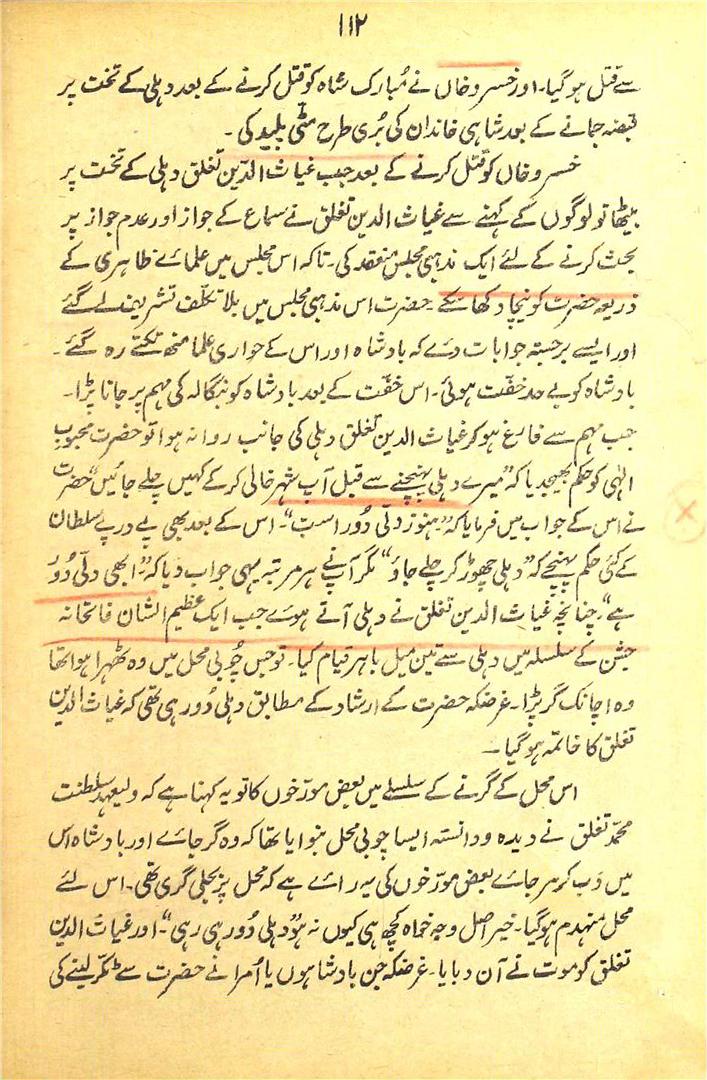 ۱۱۲
سے قتل ہو گیا۔ اور خسرو خاں نے مُبارک شاہ کو قتل کرنے کے بعد دہلی کے تخت پر
قبضہ جمانے کے بعد شاہی خاندان کی بُری طرح مٹی پلید کی۔
خسرو خاں کو قتل کرنے کے بعد جب غیاث الدّین تغلق دہلی کے تخت پر
بیٹھا تو لوگوں کے کہنے سے غیاث الدین تغلق نے سماع کے جواز اور عدم جواز پر
بحث کرنے کے لئے ایک مذہبی مجلس منعقد کی۔ تاکہ اس مجلس میں علمائے ظاہری کے
ذریعہ حضرت کو نیچا دکھا سکے۔ حضرت اس مذہبی مجلس میں بلا تکلّف تشریف لے گئے
اور ایسے برجستہ جوابات دئے کہ بادشاہ اور اس کے حواری علما منھ تکتے رہ گئے۔
بادشاہ کو بے حد خفّت ہوئی۔ اس خفّت کے بعد بادشاہ کو بنگالہ کی مہم پر جانا پڑا۔
جب مہم سے فارغ ہو کر غیاث الدین تغلق دہلی کی جانب روانہ ہوا تو حضرت محبوب
الٰہی کو حکم بھیجدیا کہ "میرے دہلی پہنچنے سے قبل آپ شہر خالی کر کے کہیں چلے جائیں" حضرت
نے اس کے جواب میں فرمایا کہ "ہنوز دلّی دُور است"۔ اس کے بعد بھی پے در پے سلطان
کے کئی حکم پہنچے کہ "دہلی چھوڑ کر چلے جاؤ" مگر آپ نے ہر مرتبہ یہی جواب دیا کہ "ابھی دلّی دُور
ہے"۔ چنانچہ غیاث الدین تغلق نے دہلی آتے ہوئے جب ایک عظیم الشان فاتحانہ
جشن کے سلسلہ میں دہلی سے تین میل باہر قیام کیا۔ تو جس چُوبی محل میں وہ ٹھہرا ہوا تھا
وہ اچانک گر پڑا۔ غرضکہ حضرت کے ارشاد کے مطابق دہلی دُور ہی تھی کہ غیاث الدین
تغلق کا خاتمہ ہو گیا۔
اس محل کے گرنے کے سلسلے میں بعض مورّخوں کا تو یہ کہنا ہے کہ ولیعہد سلطنت
محمّد تغلق نے دیدہ و دانستہ ایسا چوبی محل بنوایا تھا کہ وہ گر جائے اور بادشاہ اس
میں دَب کر مر جائے بعض مورّخوں کی یہ رائے ہے کہ محل پر بجلی گری تھی۔ اس لئے
محل منہدم ہو گیا۔ خیر اصل وجہ خواہ کچھ ہی کیوں نہ ہو "دہلی دُور ہی رہی"۔ اور غیاث الدین
تغلق کو موت نے آن دبایا۔ غرضکہ جن بادشاہوں یا اُمرا نے حضرت سے ٹکر لینے کی